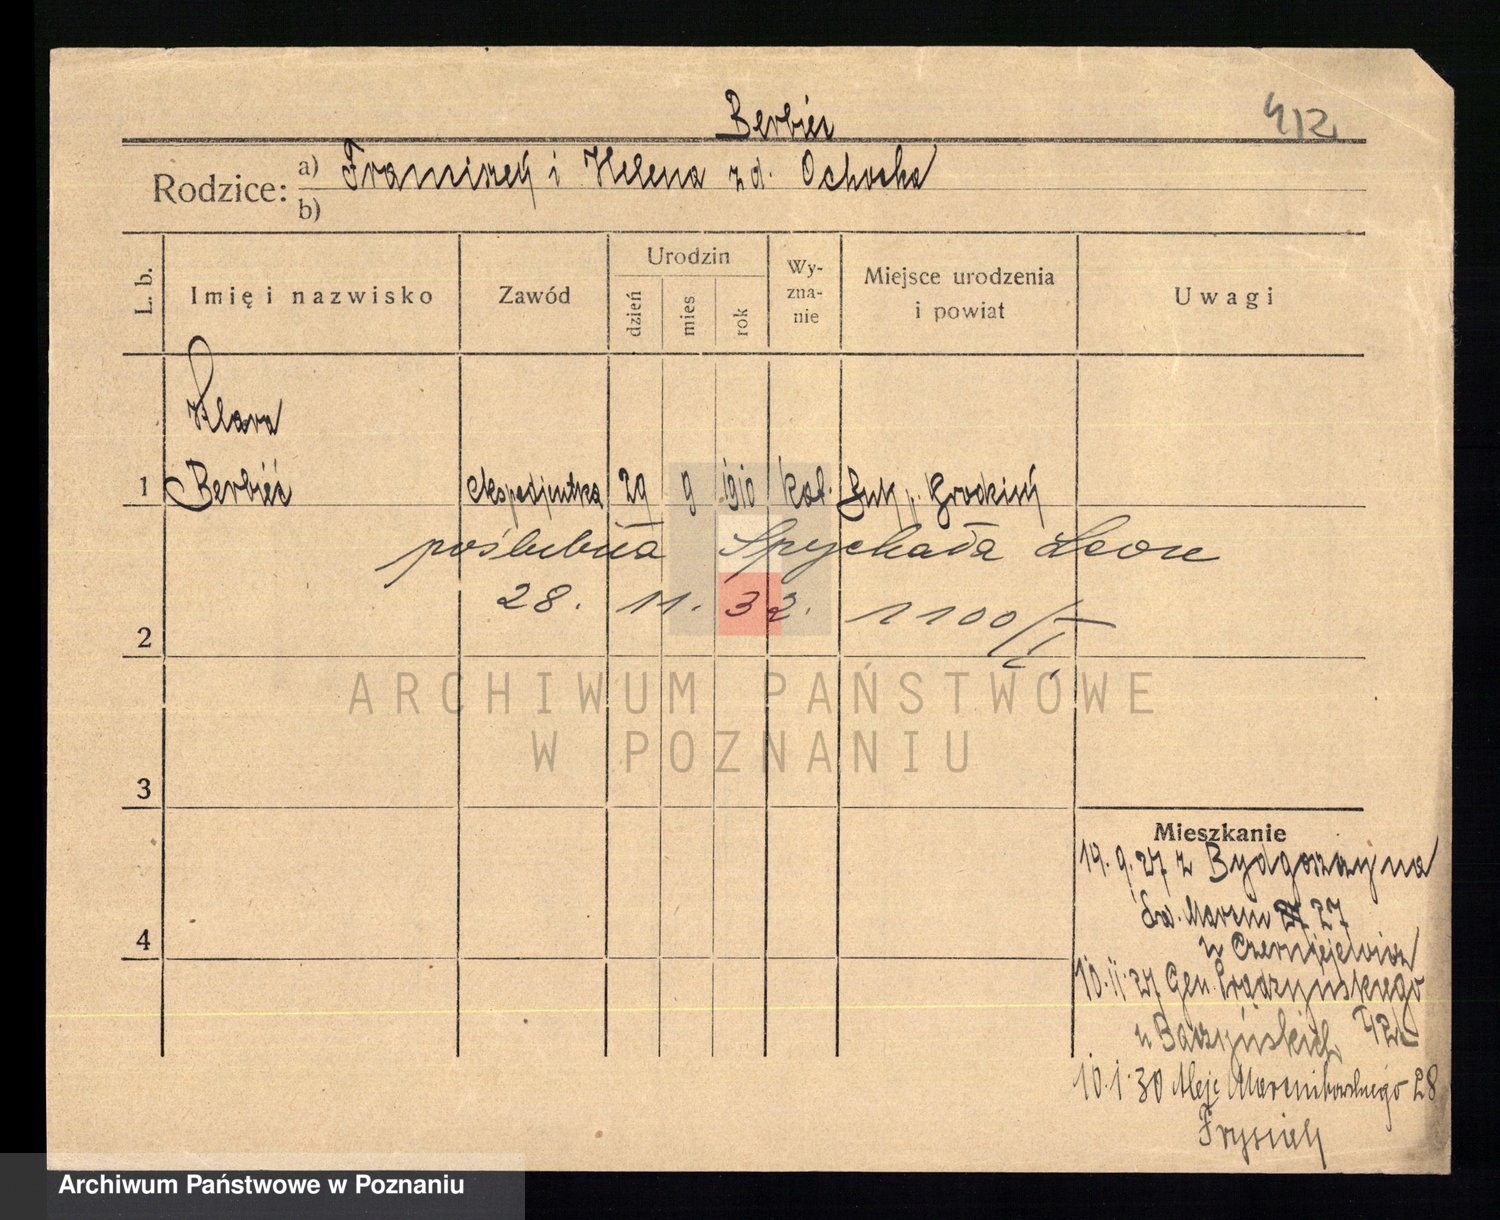 412
Berbieć
Rodzice: a) Franciszek i Helena zd. Ochocka
b)
L. b.
Imię i nazwisko
Zawód
Urodzin
dzień
mies
rok
Wy-
zna-
nie
Miejsce urodzenia
i powiat
Uwagi
Klara
1 Berbieć ekspedjentka 29 9 1910 kat. Buk p. Grodzisk
poślubiła Spychała Leon
28. 11. 32. 1100/I
2
ARCHIWUM PAŃSTWOWE
W POZNANIU
3
Mieszkanie
19.9.27 z Bydgoszczy na
Św. Marcin 27
4
u Czerniejewicz
10.11.27 Gen. Prądzyńskiego
42
10.1.30 Aleje Marcinkowskiego 28
Archiwum Państwowe w Poznaniu